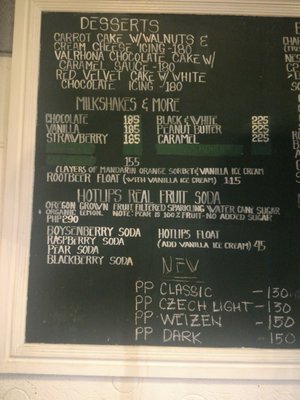 DESSERTS
CARROT CAKE W/WALNUTS &
CREAM CHEESE ICING -180
VALRHONA CHOCOLATE CAKE W/
CARAMEL SAUCE -180
RED VELVET CAKE W/WHITE
CHOCOLATE ICING 180
MILKSHAKES & MORE
CHOCOLATE 185 BLACK & WHITE 225
VANILLA 185 PEANUT BUTTER 225
STRAWBERRY 185 CARAMEL 225
155
(LAYERS OF MANDARIN ORANGE SORBET & VANILLA ICE CREAM
ROOTBEER FLOAT (WITH VANILLA ICE CREAM) 115
HOTLIPS REAL FRUIT SODA
OREGON GROWN FRUIT FILTERED SPARKLING WATER CANE SUGAR
ORGANIC LEMON. NOTE: PEAR IS 100% FRUIT-NO ADDED SUGAR
PHP290
BOYSENBERRY SODA HOTLIPS FLOAT
RASPBERRY SODA (ADD VANILLA ICE CREAM) 45
PEAR SODA
BLACKBERRY SODA
NEW
PP CLASSIC -130
PP CZECH LIGHT -130
PP WEIZEN -150
PP DARK -150